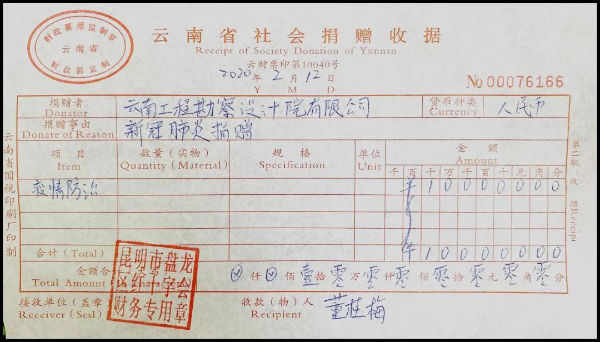 财政票据监制章
云南省
财政部监制
云南省社会捐赠收据
Receipt of Society Donation of Yunnan
云财票印第10040号
2020年2月12日
Y M D
No 00076166
捐赠者
Donator
云南工程勘察设计院有限公司
货币种类
Currency
人民币
捐赠事由
Donate of Reason
新冠肺炎捐赠
项目
Item
数量(实物)
Quantity (Material)
规格
Specification
单位
Unit
金额
Amount
千百十万千百十元角分
疫情防治
¥10000000
合计(Total)
¥10000000
金额合
Total Amount
⊗仟⊗佰壹拾零万零仟零佰零拾零元零角零分
昆明市盘龙
区红十字会
财务专用章
接收单位(盖章)
Receiver (Sesl)
收款(物)人
Recipient
董桂梅
云南省国税印刷厂印制
第二联:收据Receipt